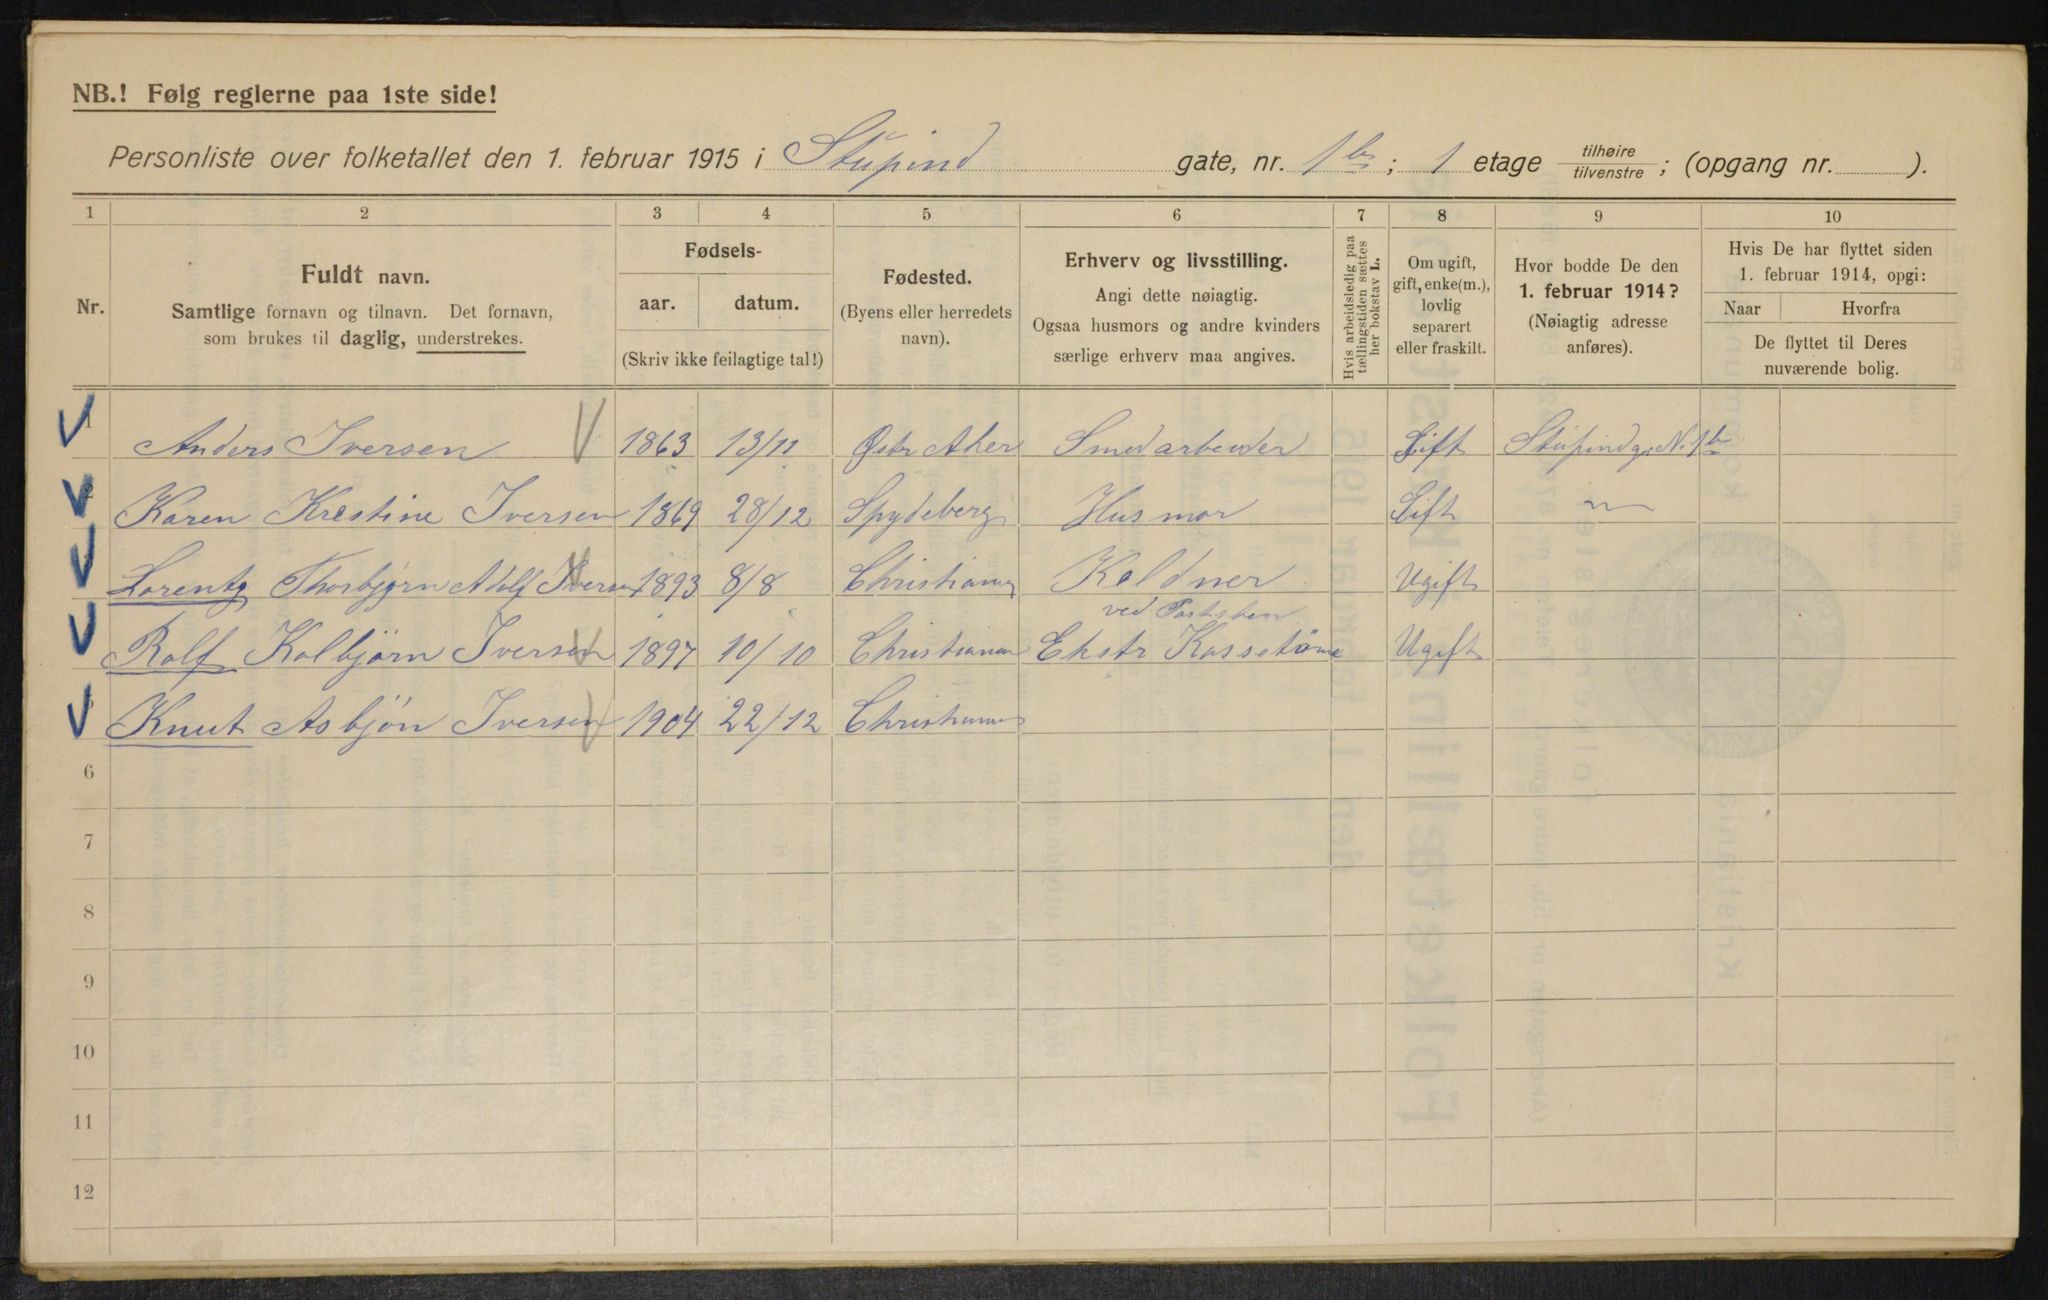 NB.! Følg reglerne paa 1ste side!
Personliste over folketallet den 1. februar 1915 i Stupind gate, nr. 1b; 1 etage tilhøire tilvenstre; (opgang nr. ).
1 2 3 4 5 6 7 8 9 10
Nr.
Fuldt navn.
Samtlige fornavn og tilnavn. Det fornavn,
som brukes til daglig, understrekes.
Fødsels-
aar. datum.
(Skriv ikke feilagtige tal!)
Fødested.
(Byens eller herredets
navn).
Erhverv og livsstilling.
Angi dette nøiagtig.
Ogsaa husmors og andre kvinders
særlige erhverv maa angives.
Hvis arbeidsledig paa
tællingstiden sættes
her bokstav L.
Om ugift,
gift, enke(m.),
lovlig
separert
eller fraskilt.
Hvor bodde De den
1. februar 1914?
(Nøiagtig adresse
anføres).
Hvis De har flyttet siden
1. februar 1914, opgi:
Naar Hvorfra
De flyttet til Deres
nuværende bolig.
1 Anders Iversen 1863 13/11 Østr Aker Smedarbeider Gift Stupindg. N. 1b
2 Karen Krestine Iversen 1869 28/12 Spydeberg Husmor Gift "
Lorentz Thorbjørn Adolf Iversen 1893 8/8 Christiania Keldner Ugift
ved
Rolf Kolbjørn Iversen 1897 10/10 Christiania Ekstr Ugift
5 Knut Asbjön Iversen 1904 22/12 Christiania
6
7
8
9
10
11
12